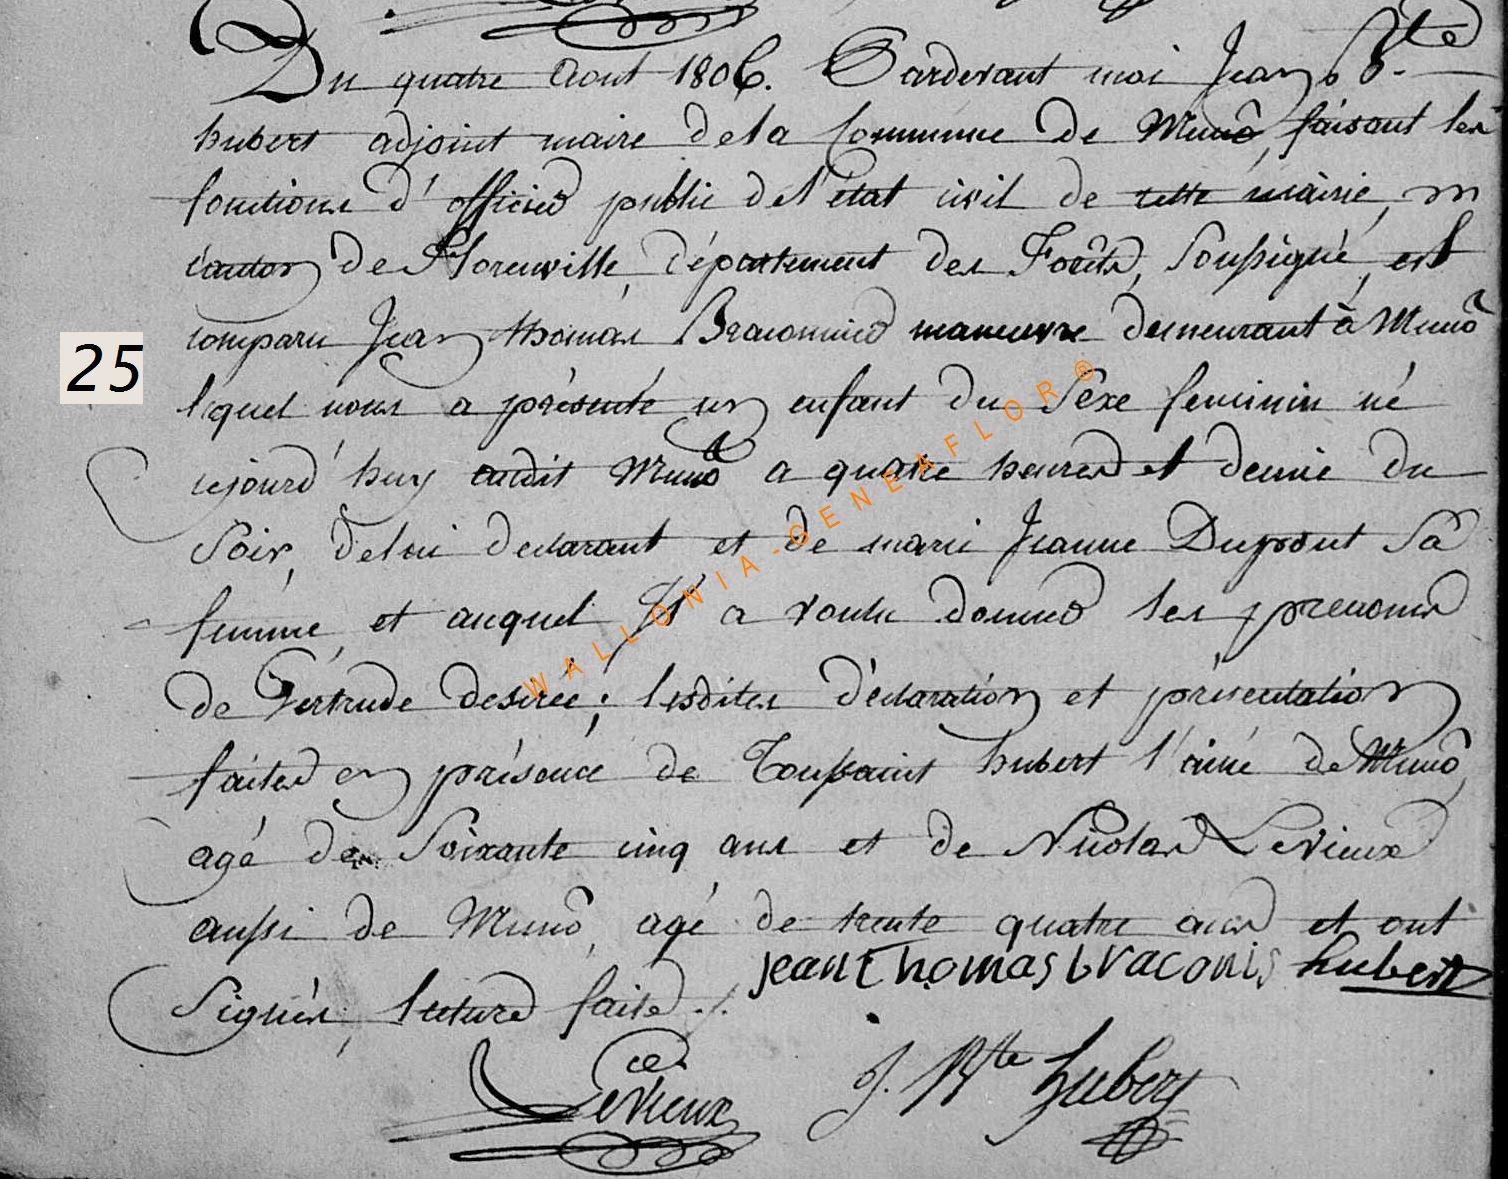 Du quatre Aout 1806. Pardevant moi Jean Bte
hubert adjoint maire dela Commune de Muno, faisant les
fonctions d'officier public de l'état civil de cette mairie,
canton de Florenville, département des Forêts, soussigné, est
comparu Jean thomas Braconnier manœuvre demeurant à Muno
lequel nous a présenté un enfant du Sexe feminin né
cejourd'huy audit Muno a quatre heures et demie du
Soir, de lui declarant et de marie Jeanne Dupont Sa
femme, et auquel Il a voulu donner les prenoms
de Gertrude desirée; lesdites déclaration et présentation
faites en présence de Toussaint hubert l'ainé de Muno,
agé de Soixante cinq ans et de Nicolas Levieux
aussi de Muno, agé de trente quatre ans et ont
Signés, lecture faite ./.
jean thomas braconis hubert
Levieux J. Bte hubert
25
WALLONIA-GENEAFLOR®